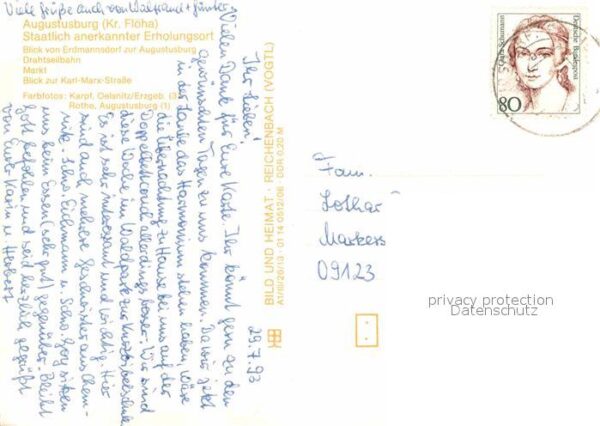 Viele Grüße auch von Waltraud + Günter
Augustusburg (Kr. Flöha)
Staatlich anerkannter Erholungsort
Blick von Erdmannsdorf zur Augustusburg
Drahtseilbahn
Markt
Blick zur Karl-Marx-Straße
Farbfotos: Karpf, Oelsnitz/Erzgeb. (3)
Rothe, Augustusburg (1)
BILD UND HEIMAT · REICHENBACH (VOGTL)
DDR 0,20 M
29.7.93
Ihr Lieben!
Vielen Dank für Eure Karte. Ihr könnt gern zu den
gewünschten Tagen zu uns kommen. Da wir jetzt
in der Laube das Harmonium stehen haben, wäre
die Übernachtung zu Hause bei uns auf der
Doppelbettcouch allerdings besser. Wir sind
diese Woche in Waldpark zur Kurzbibelschule
Es ist sehr interessant und wichtig. Hier
sind auch mehrere Geschwister aus Chem-
nitz. Schw. Eichmann u. Schw. sitzen
uns beim Essen (sehr gut) gegenüber. Bleibt
Gott befohlen und seid herzlich gegrüßt
von Eurer Karin u. Herbert
Clara Schumann
Deutsche Bundespost
80
Fam.
Lothar
Markers
09123
privacy protection
Datenschutz